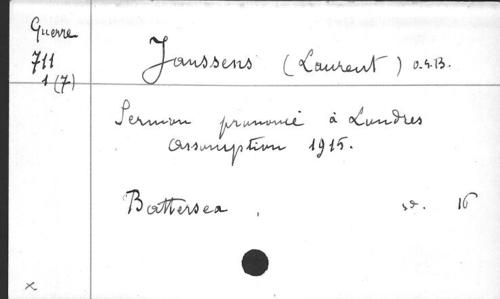 Guerre
711
1 (7)
Janssens (Laurent) O.S.B.
Sermon prononcé à Londres
Assomption 1915.
Battersea, sd. 16
x